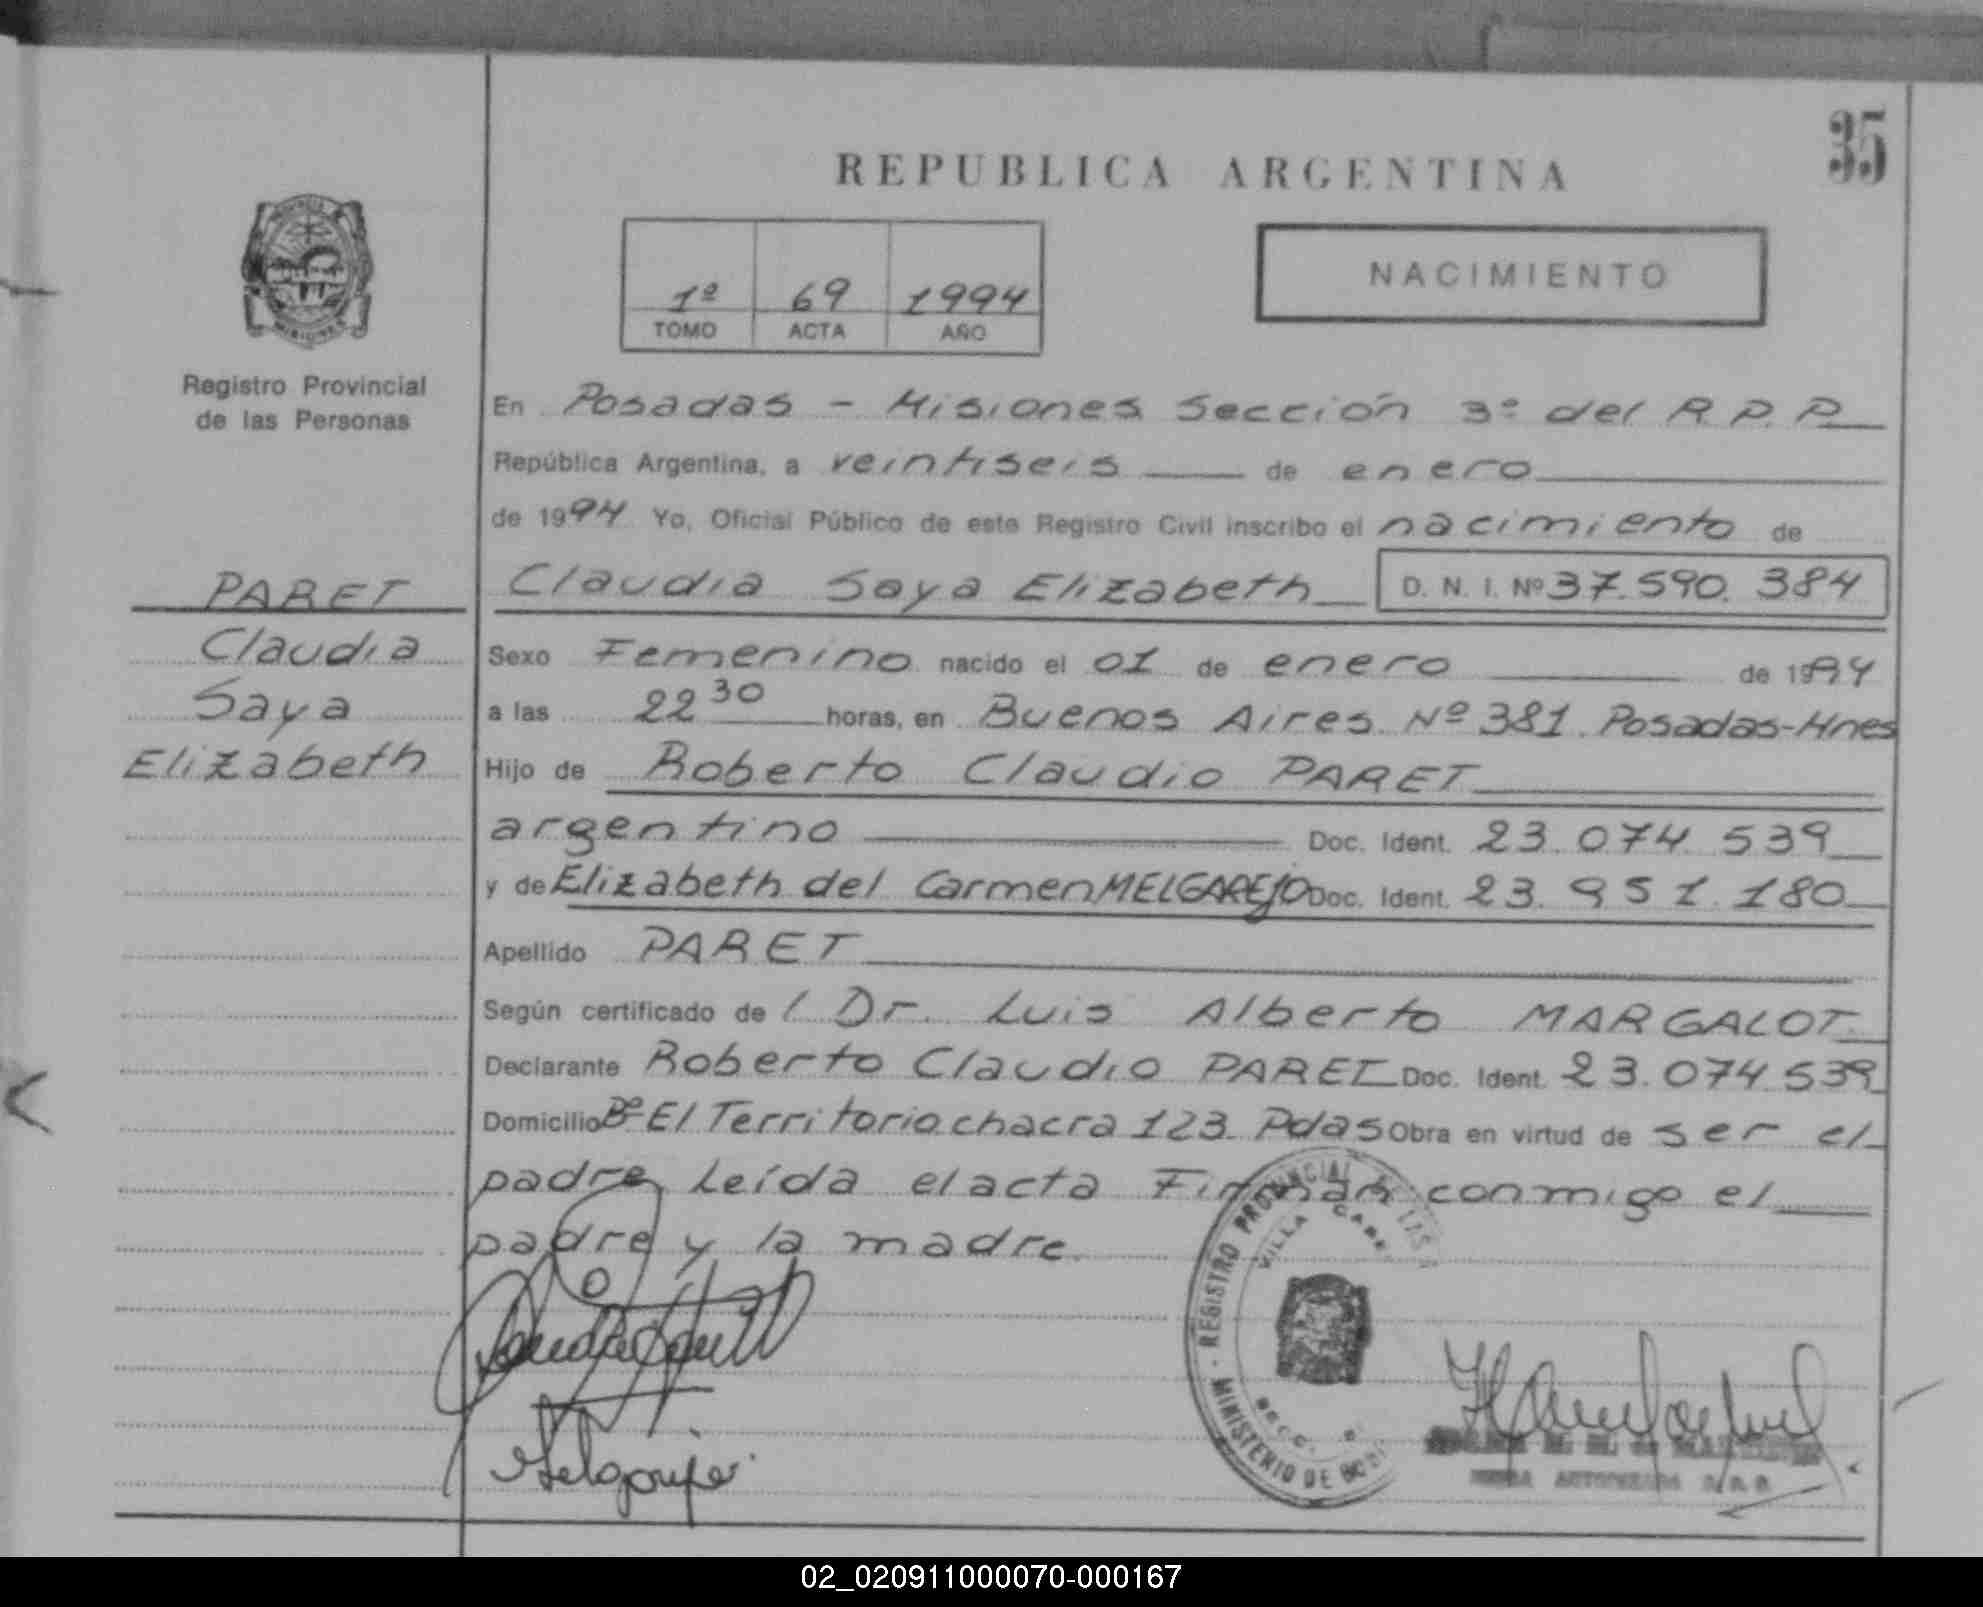 35
REPUBLICA ARGENTINA
1º 69 1994
TOMO ACTA AÑO
NACIMIENTO
Registro Provincial
de las Personas
PARET
Claudia
Saya
Elizabeth
En Posadas - Misiones Sección 3º del R.P.P.
República Argentina, a veintiseis de enero
de 1994 Yo, Oficial Público de este Registro Civil inscribo el nacimiento de
Claudia Saya Elizabeth D. N. I. Nº 37.590.384
Sexo Femenino nacido el 01 de enero de 1994
a las 22 30 horas, en Buenos Aires Nº 381 Posadas-Mnes
Hijo de Roberto Claudio PARET
argentino Doc. Ident. 23.074.539
y de Elizabeth del Carmen MELGAREJO Doc. Ident. 23.951.180
Apellido PARET
Según certificado de l Dr. Luis Alberto MARGALOT
Declarante Roberto Claudio PARET Doc. Ident. 23.074.539
Domicilio Bº El Territorio chacra 123. Pdas Obra en virtud de ser el
padre Leída el acta Firman conmigo el
padre y la madre.
REGISTRO PROVINCIAL DE LAS
VILLA CABE
MINISTERIO DE GOBI
Melgarejo
02_020911000070-000167